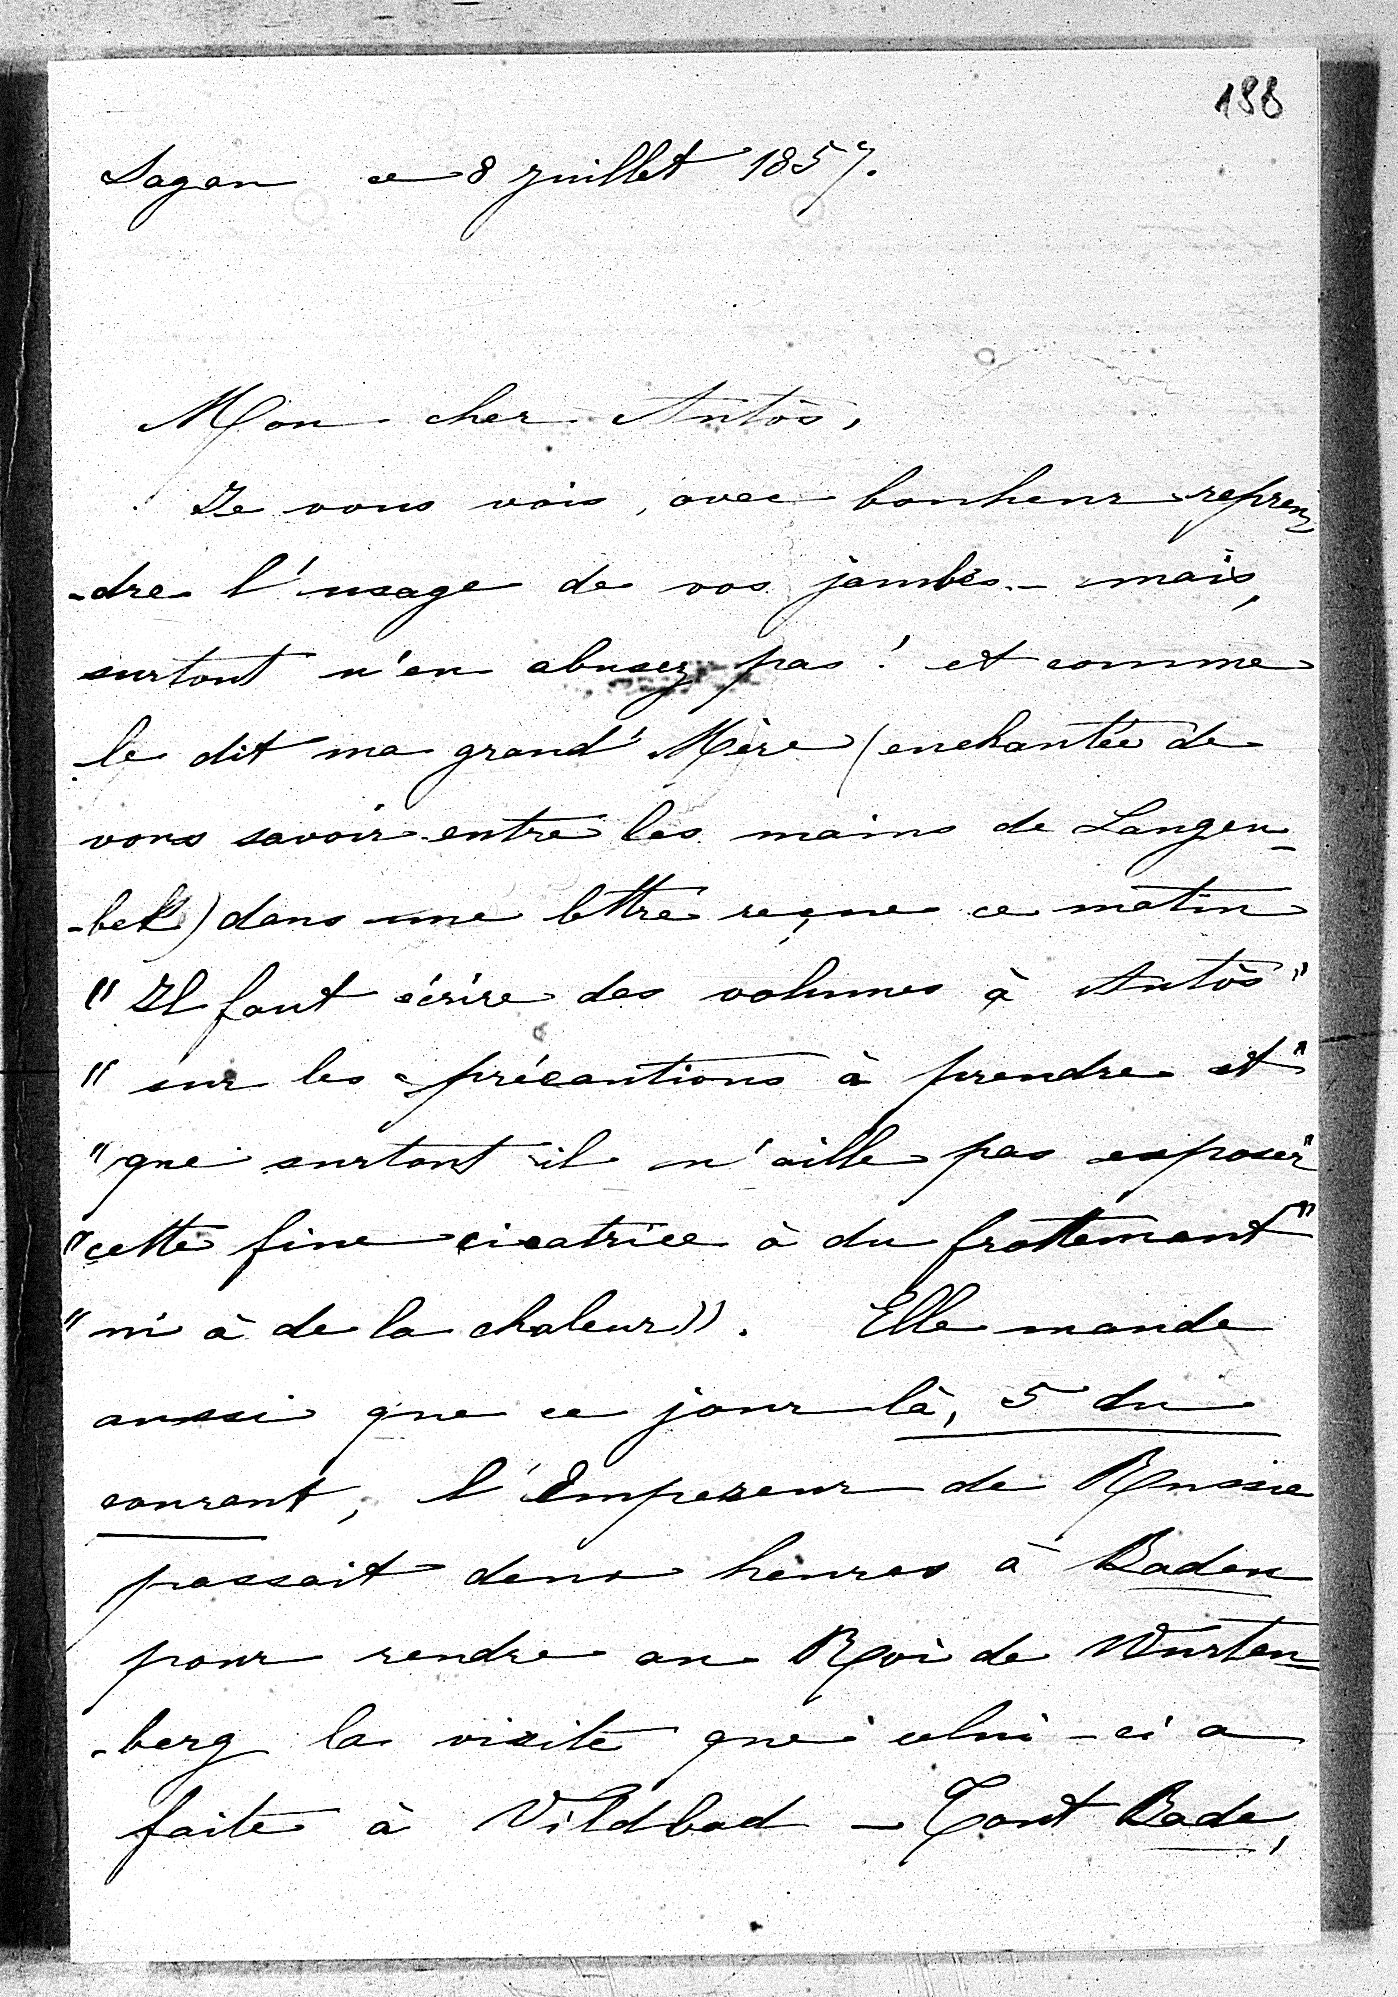 188
Sagan ce 8 Juillet 1857.
Mon cher Antòs,
Je vous vois, avec bonheur repren-
-dre l'usage de vos jambes - mais,
surtout n'en abusez pas! et comme
le dit ma grand'Mère (enchantée de
vous savoir entre les mains de Langen-
-bek) dans une lettre reçue ce matin
"Il faut écrire des volumes à Antòs"
"sur les précautions à prendre et"
"que surtout il n'aille pas exposer"
"cette fine cicatrice à du frottement"
"ni à de la chaleur)). Elle mande
aussi que ce jour là, 5 du
courant, l'Empereur de Russie
passait deux heures à Baden
pour rendre au Roi de Wurtem-
-berg la visite que celui-ci a
faite à Vildbad - Tout Bade,